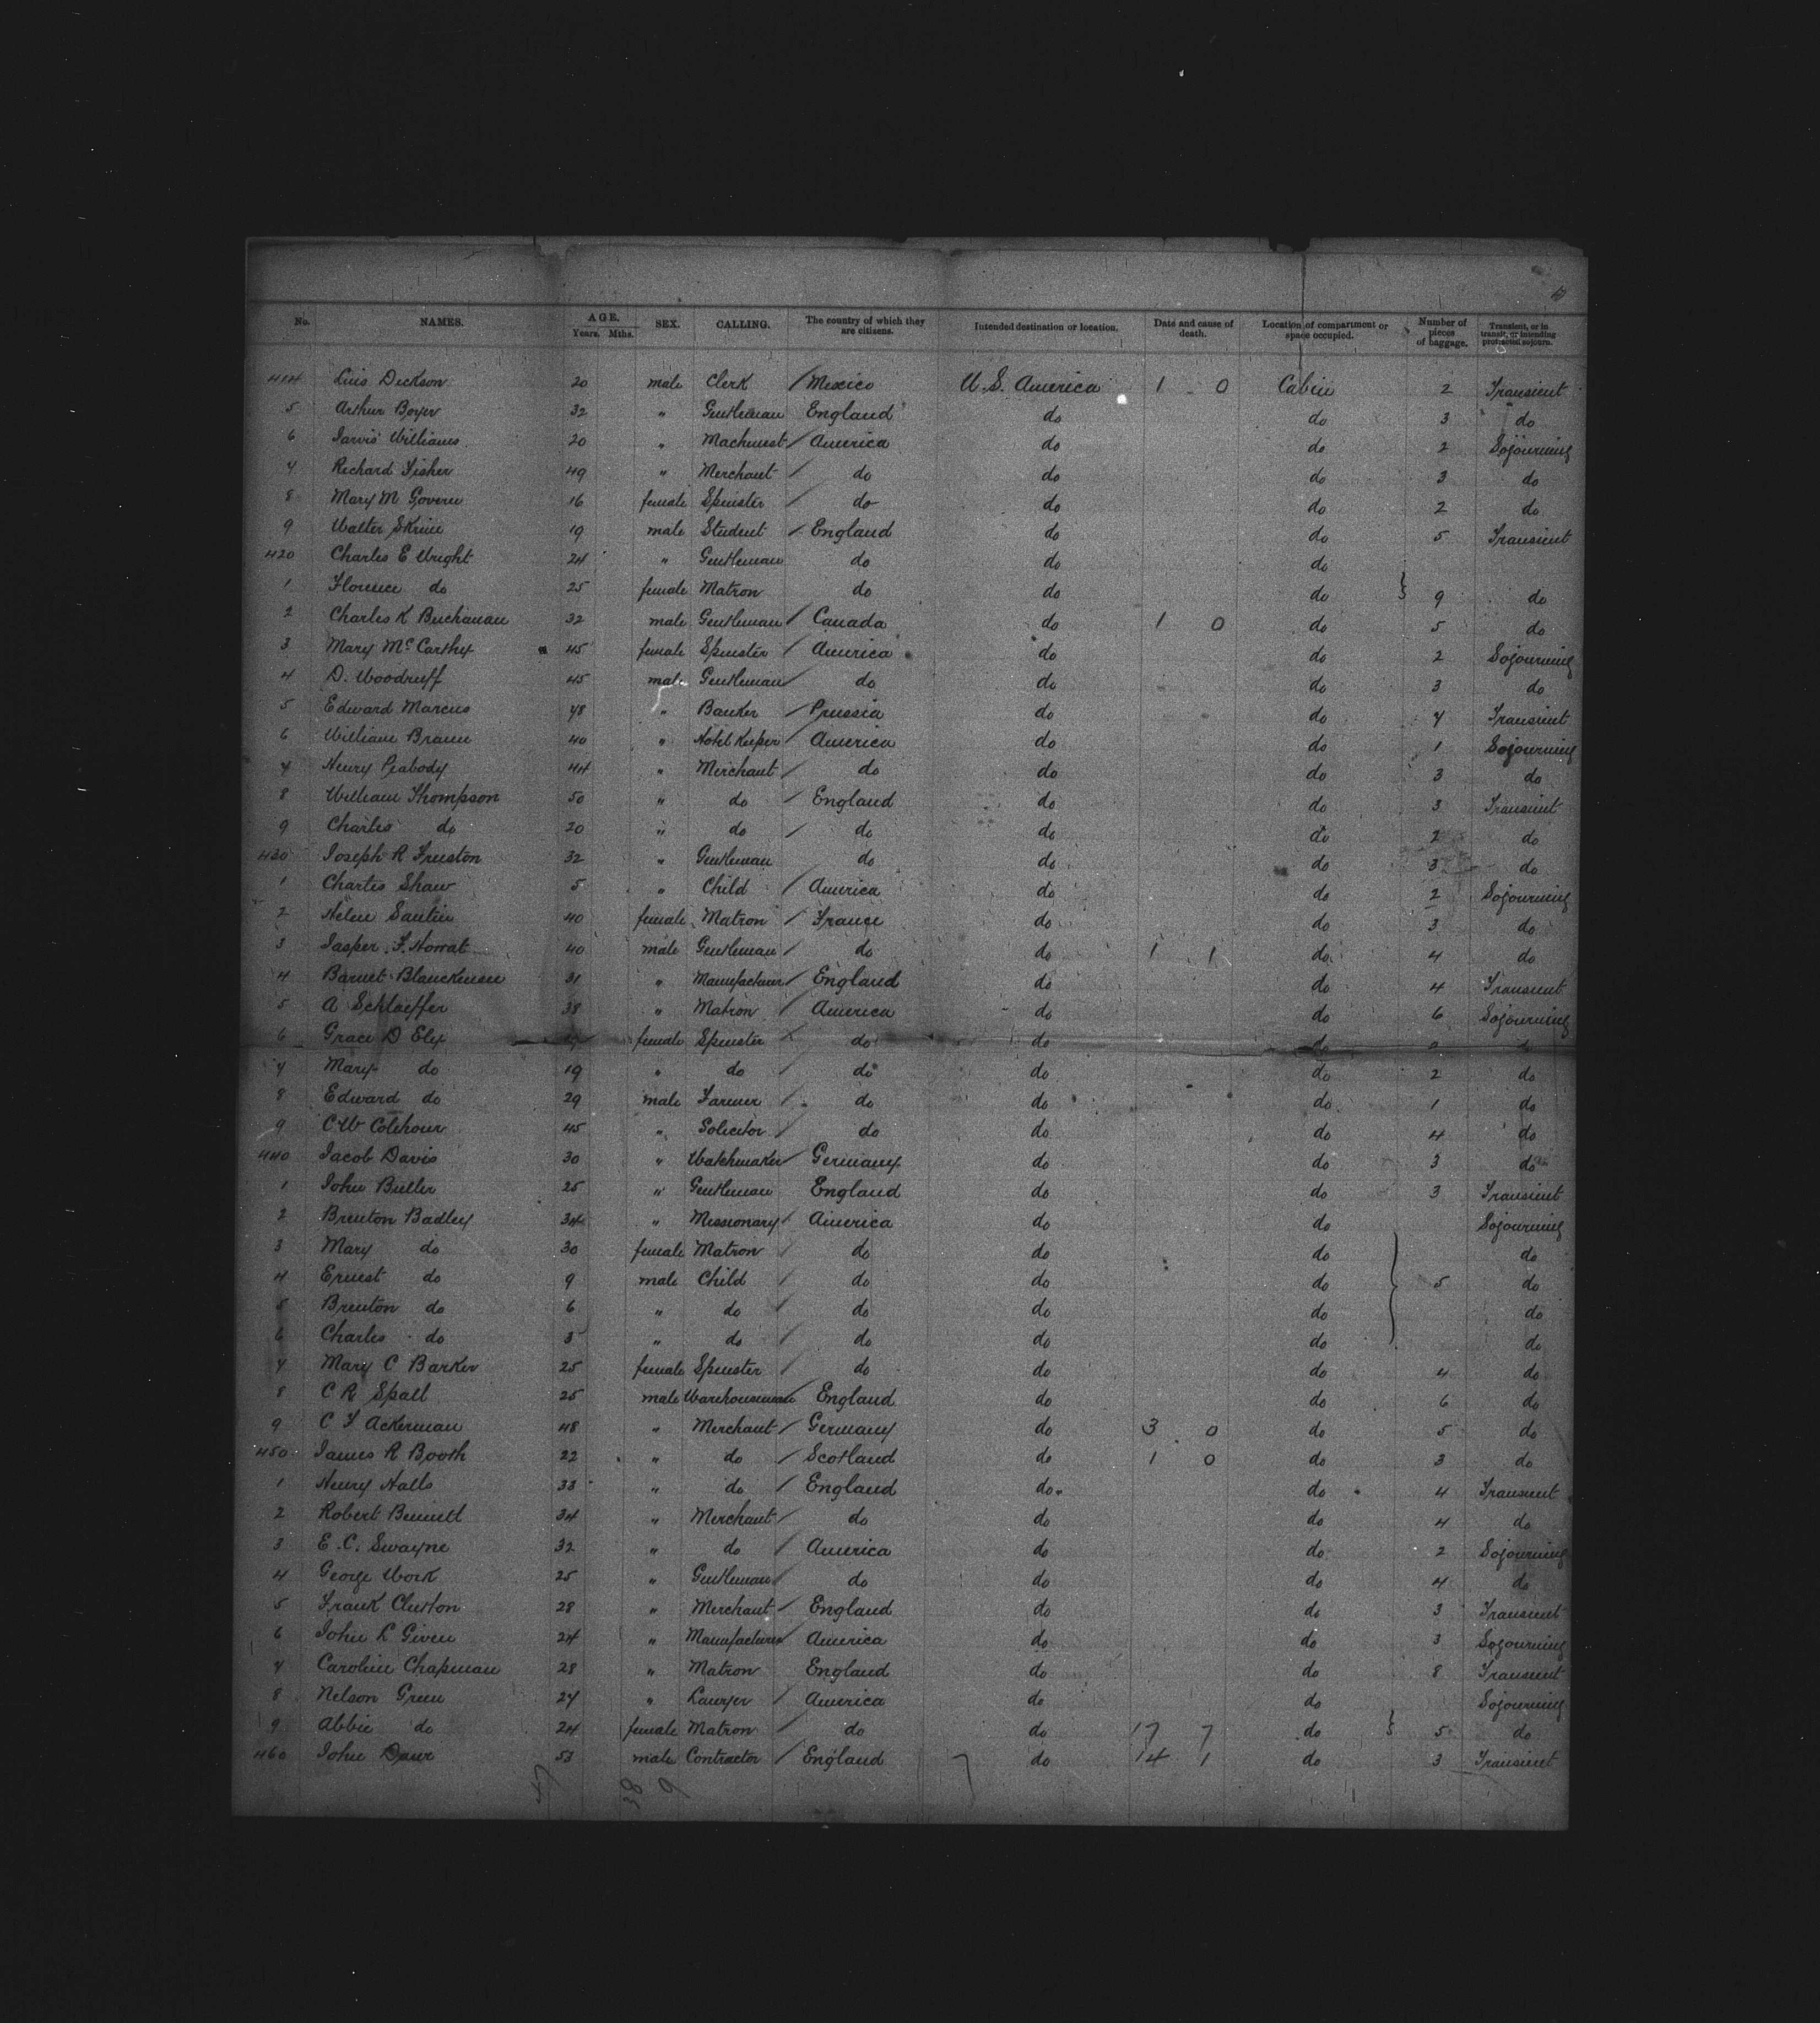 No. NAMES. AGE. Years. Mths. SEX. CALLING. The country of which they are citizens. Intended destination or location. Date and cause of death. Location of compartment or space occupied. Number of pieces of baggage. Transient, or in transit, or intending protracted sojourn.
414 Luis Dickson 20 male Clerk / Mexico U.S. America 1 0 Cabin 2 Transient
5 Arthur Boyer 32 " Gentleman England do do 3 do
6 Jarvis Williams 20 " Machinest / America do do 2 Sojourning
7 Richard Fisher 49 " Merchant / do do do 3 do
8 Mary M Govern 16 female Spinster / do do do 2 do
9 Walter Skrine 19 male Student / England do do 5 Transient
420 Charles E Wright 24 " Gentleman do do do
1 Florence do 25 female Matron do do do } 9 do
2 Charles K Buchanan 32 male Gentleman / Canada do 1 0 do 5 do
3 Mary McCarthy 45 female Spinster / America do do 2 Sojourning
4 D. Woodruff 45 male Gentleman / do do do 3 do
5 Edward Marcus 48 " Banker / Prussia do do 7 Transient
6 William Braun 40 " Hotel Keeper / America do do 1 Sojourning
7 Henry Peabody 44 " Merchant / do do do 3 do
8 William Thompson 50 " do / England do do 3 Transient
9 Charles do 20 " do / do do do 2 do
430 Joseph R Fruston 32 " Gentleman do do do 3 do
1 Charles Shaw 5 " Child / America do do 2 Sojourning
2 Helen Sautin 40 female Matron / France do do 3 do
3 Jasper F. Howat 40 male Gentleman / do do 1 1 do 4 do
4 Barnet Blanckenseu 31 " Manufacturer / England do do 4 Transient
5 A Schlaeffer 38 " Matron / America do do 6 Sojourning
6 Grace D Ely female Spinster / do do do do
7 Mary do 19 " do / do do do 2 do
8 Edward do 29 male Farmer / do do do 1 do
9 C W Colehour 45 " Solicitor / do do do 4 do
440 Jacob Davis 30 " Watchmaker / Germany do do 3 do
1 John Buller 25 " Gentleman England do do 3 Transient
2 Brenton Badley 34 " Missionary / America do do Sojourning
3 Mary do 30 female Matron / do do do do
4 Ernest do 9 male Child / do do do } 5 do
5 Brenton do 6 " do / do do do do
6 Charles do 3 " do / do do do do
7 Mary C Barker 25 female Spinster / do do do 4 do
8 C R Spall 25 male Warehouseman England do do 6 do
9 C F Ackerman 48 " Merchant / Germany do 3 0 do 5 do
450 James R Booth 22 " do / Scotland do 1 0 do 3 do
1 Henry Halls 33 " do / England do do 4 Transient
2 Robert Bennett 34 " Merchant / do do do 4 do
3 E. C. Swayne 32 " do / America do do 2 Sojourning
4 George Work 25 " Gentleman / do do do 4 do
5 Frank Clutton 28 " Merchant / England do do 3 Transient
6 John L Given 24 " Manufacturer / America do do 3 Sojourning
7 Caroline Chapman 28 " Matron England do do 8 Transient
8 Nelson Green 27 " Lawyer / America do do Sojourning
9 Abbie do 24 female Matron / do do 17 7 do } 5 do
460 John 53 male Contractor / England do 14 1 do 3 Transient
47 38 9